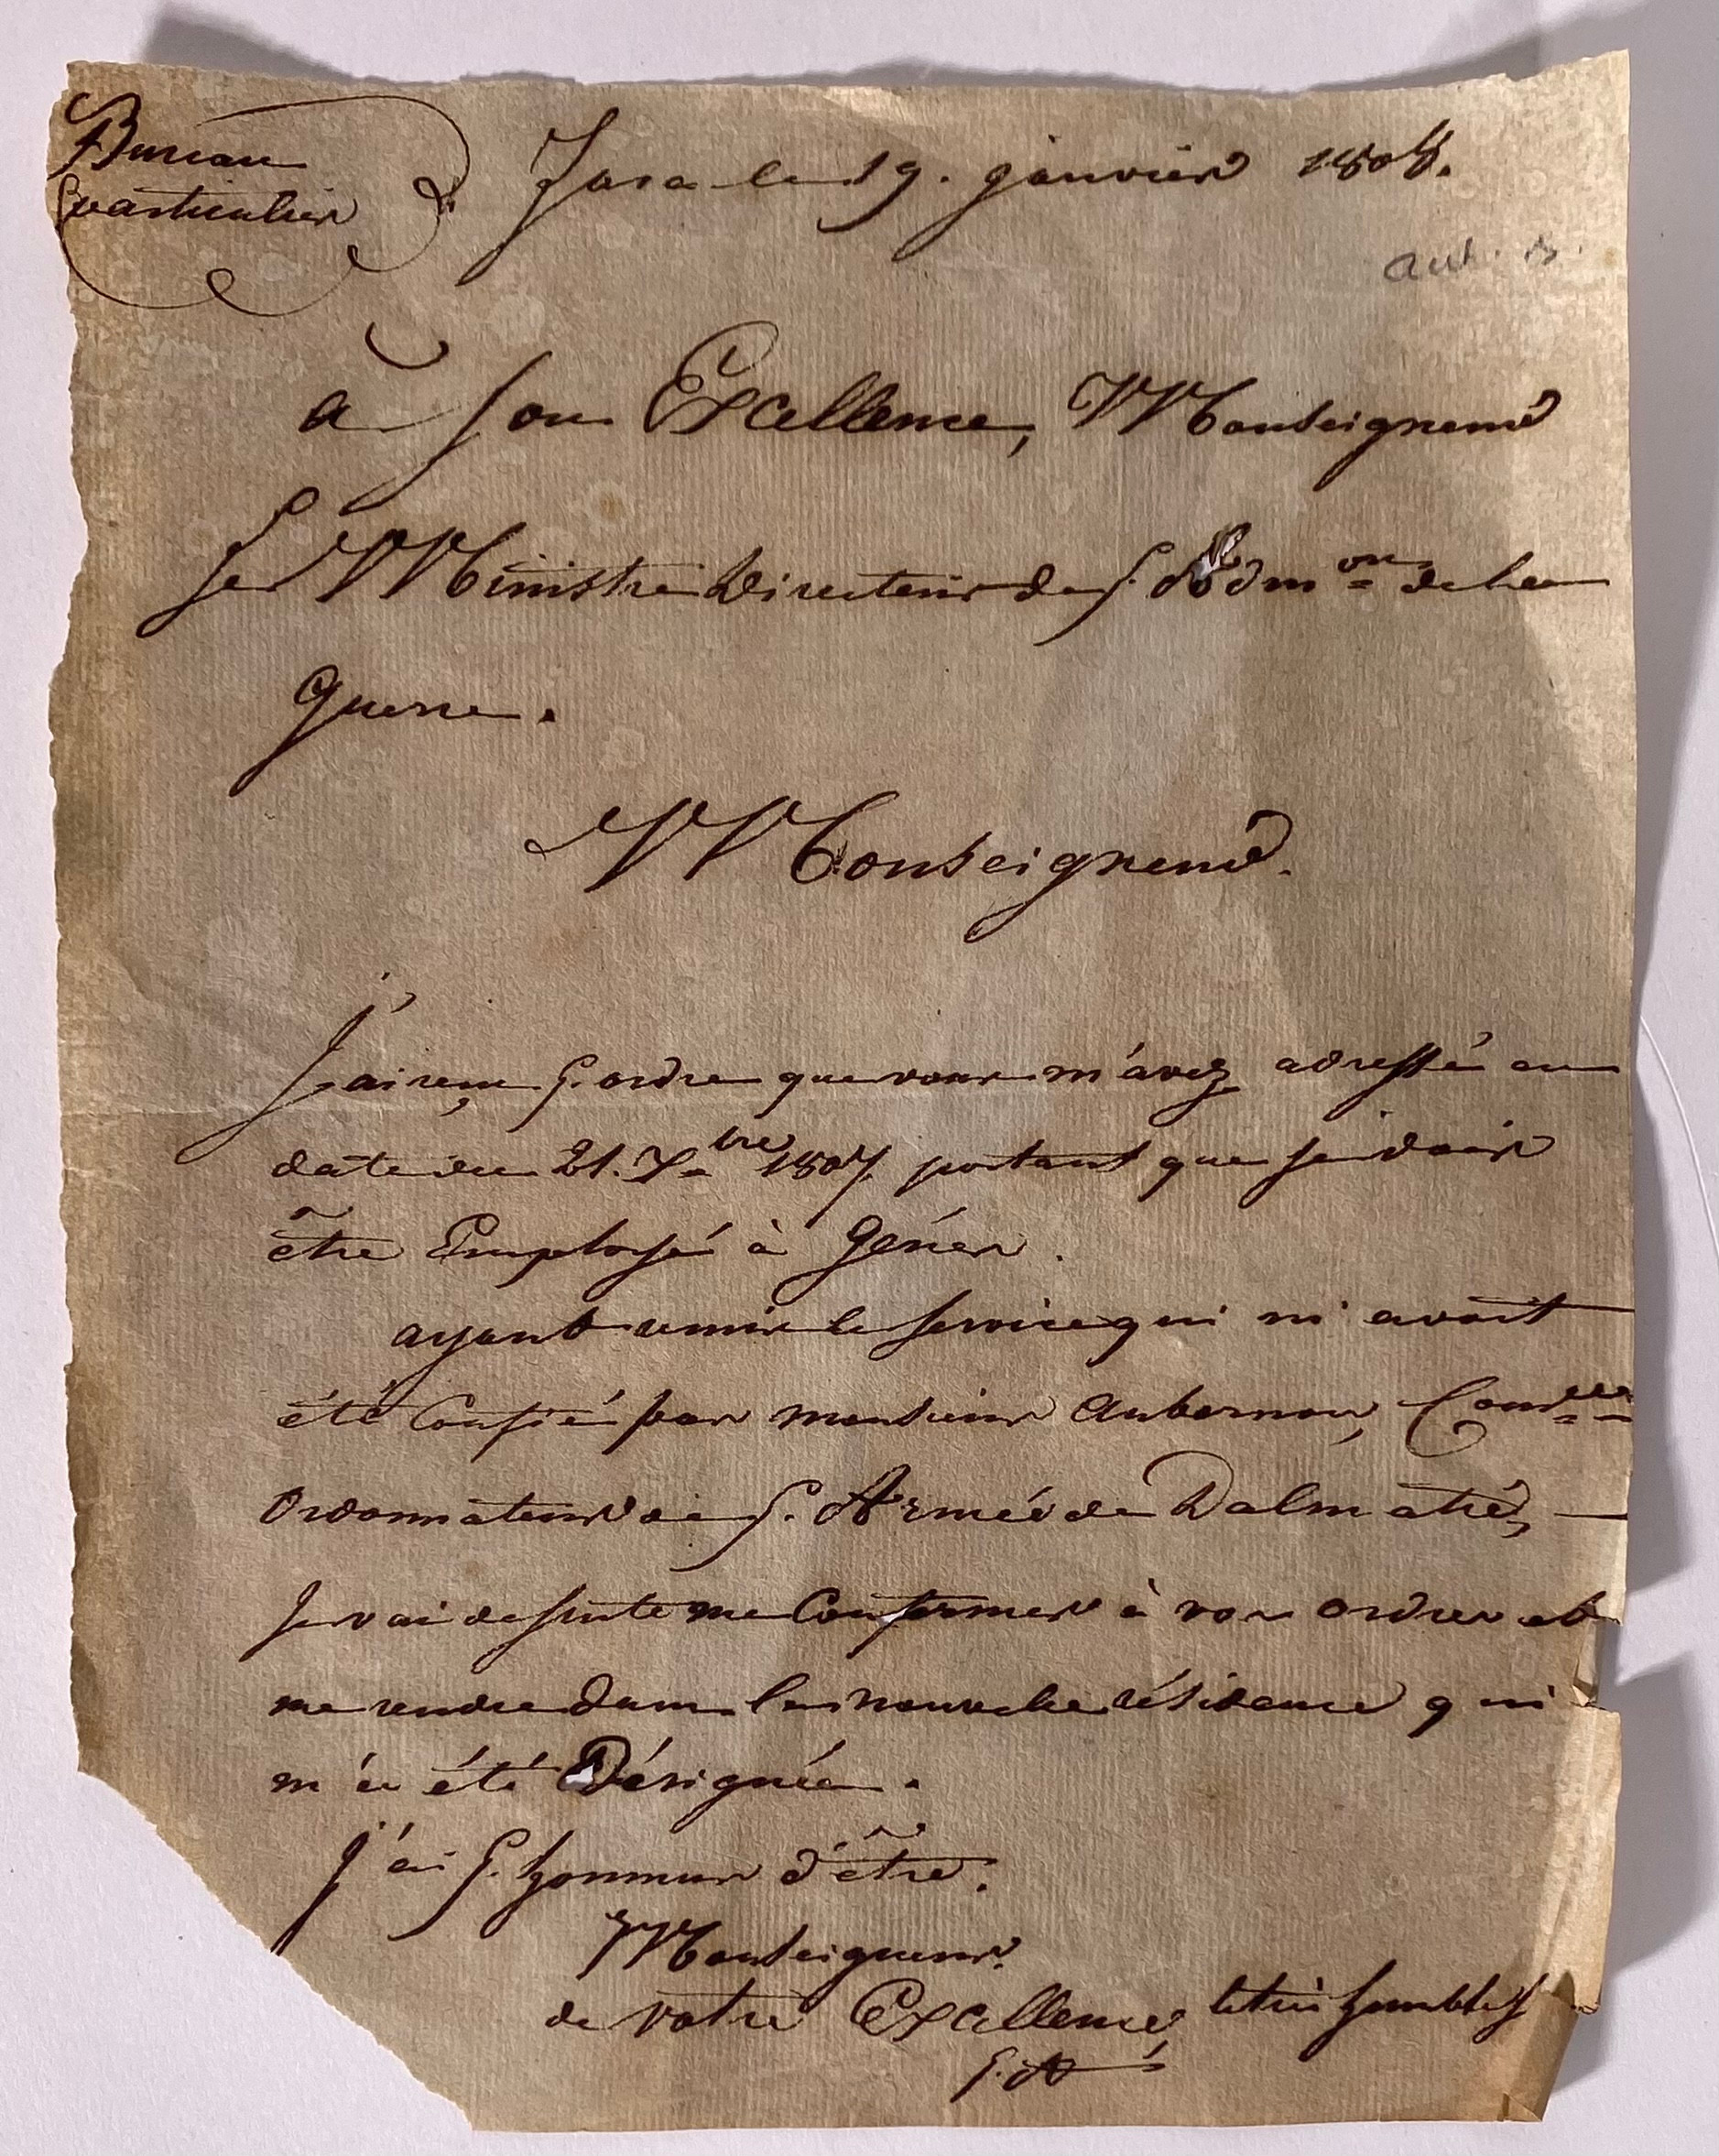 Bureau
particulier
Zara le 19. janvier 1808.
a son Excellence, Monseigneur
Le Ministre Directeur de l'Adm.on de la
Guerre.
Monseigneur.
J'ai reçu l'ordre que vous m'avéz adressé en
date du 21. X.bre 1807 portant que je dois
être Employé à Gênes.
ayant remis le service qui m'avoit
été Confié par monsieur Aubernon, Com.re
Ordonnateur de l'Armée de Dalmatie,
Je vai de suite me Conformer à vos ordres et
me rendre dans la nouvelle résidence qui
m'a été Désignée.
J'ai l'honneur d'être.
Monseigneur.
de votre Excellence le très humble